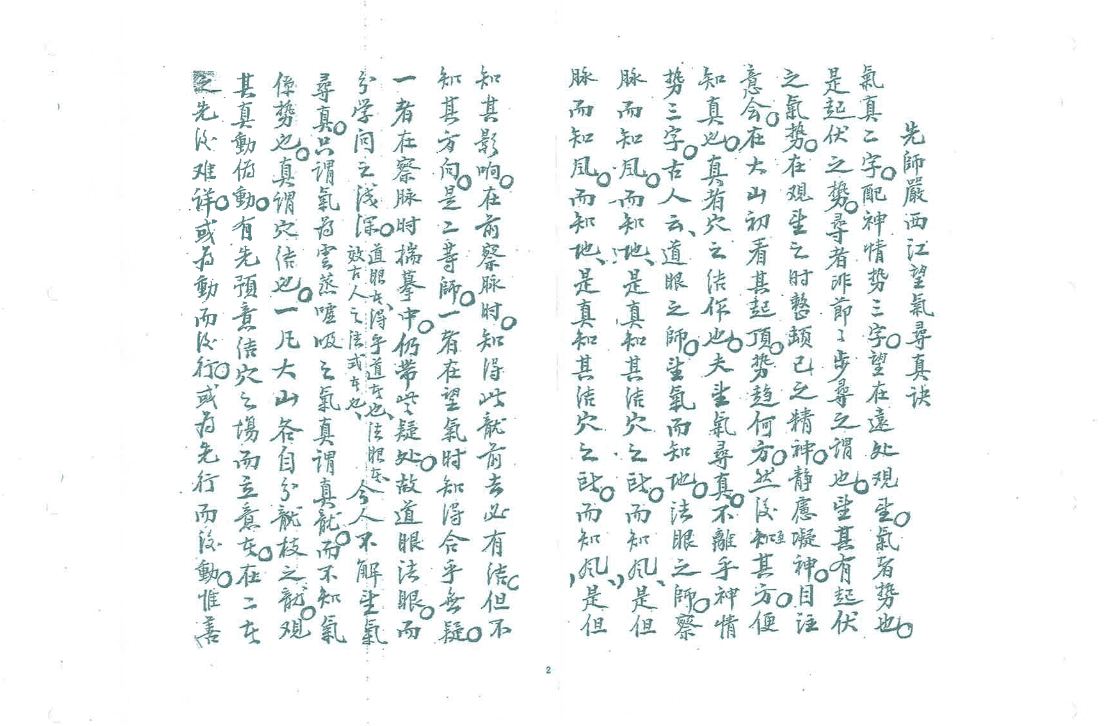 先師嚴西江望氣尋真诀
氣真二字配神情势三字望在遠处观望氣者势也
是起伏之势尋者非節々步尋之谓也望其有起伏
之氣势在观望之时整頓己之精神静慮凝神目注
意会在大山初看其起頂势趋何方然后知其方便
知真也真者穴之结作也夫望氣尋真不離乎神情
势三字古人云道眼之師望氣而知地法眼之師察
脉而知风而知地是真知其结穴之所而知风是但
脉而知风而知地是真知其结穴之所而知风是但
知其影响在前察脉时知得此龍前去必有结但不
知其方向是二等師一者在望氣时知得合乎無疑
一者在察脉时揣摹中仍带些疑处故道眼法眼而
分学问之浅深道眼在得乎道在也法眼在效古人之法式在也今人不解望氣
尋真只谓氣為雲蒸嘘吸之氣真谓真龍而不知氣
係势也真谓穴结也一凡大山各自分龍枝之龍观
其真動偽動有先預意结穴之場而立意在在二在
之先后难详或為動而后行或為先行而后動惟善
2